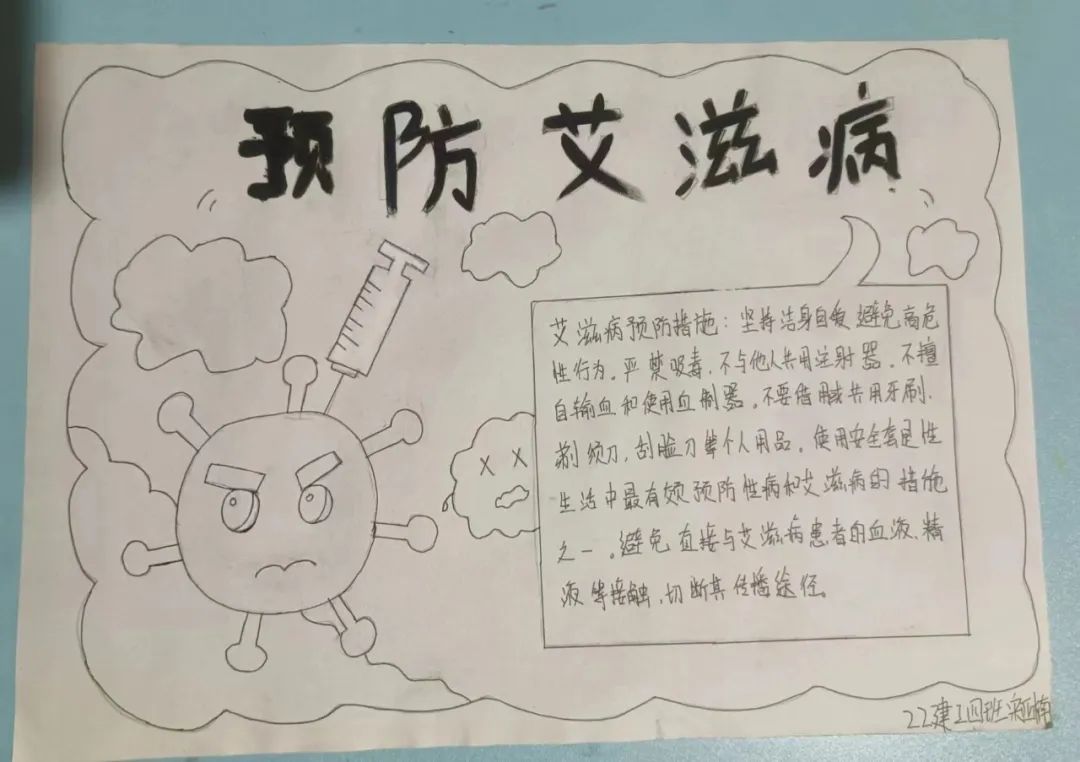 预防艾滋病
艾滋病预防措施：坚持洁身自爱 避免高危
性行为。严禁吸毒，不与他人共用注射器。不擅
自输血和使用血制器。不要借用或共用牙刷、
剃须刀，刮脸刀等个人用品。使用安全套是性
生活中最有效预防性病和艾滋病的措施
之一。避免直接与艾滋病患者的血液、精
液等接触，切断其传播途径。
22建工四班